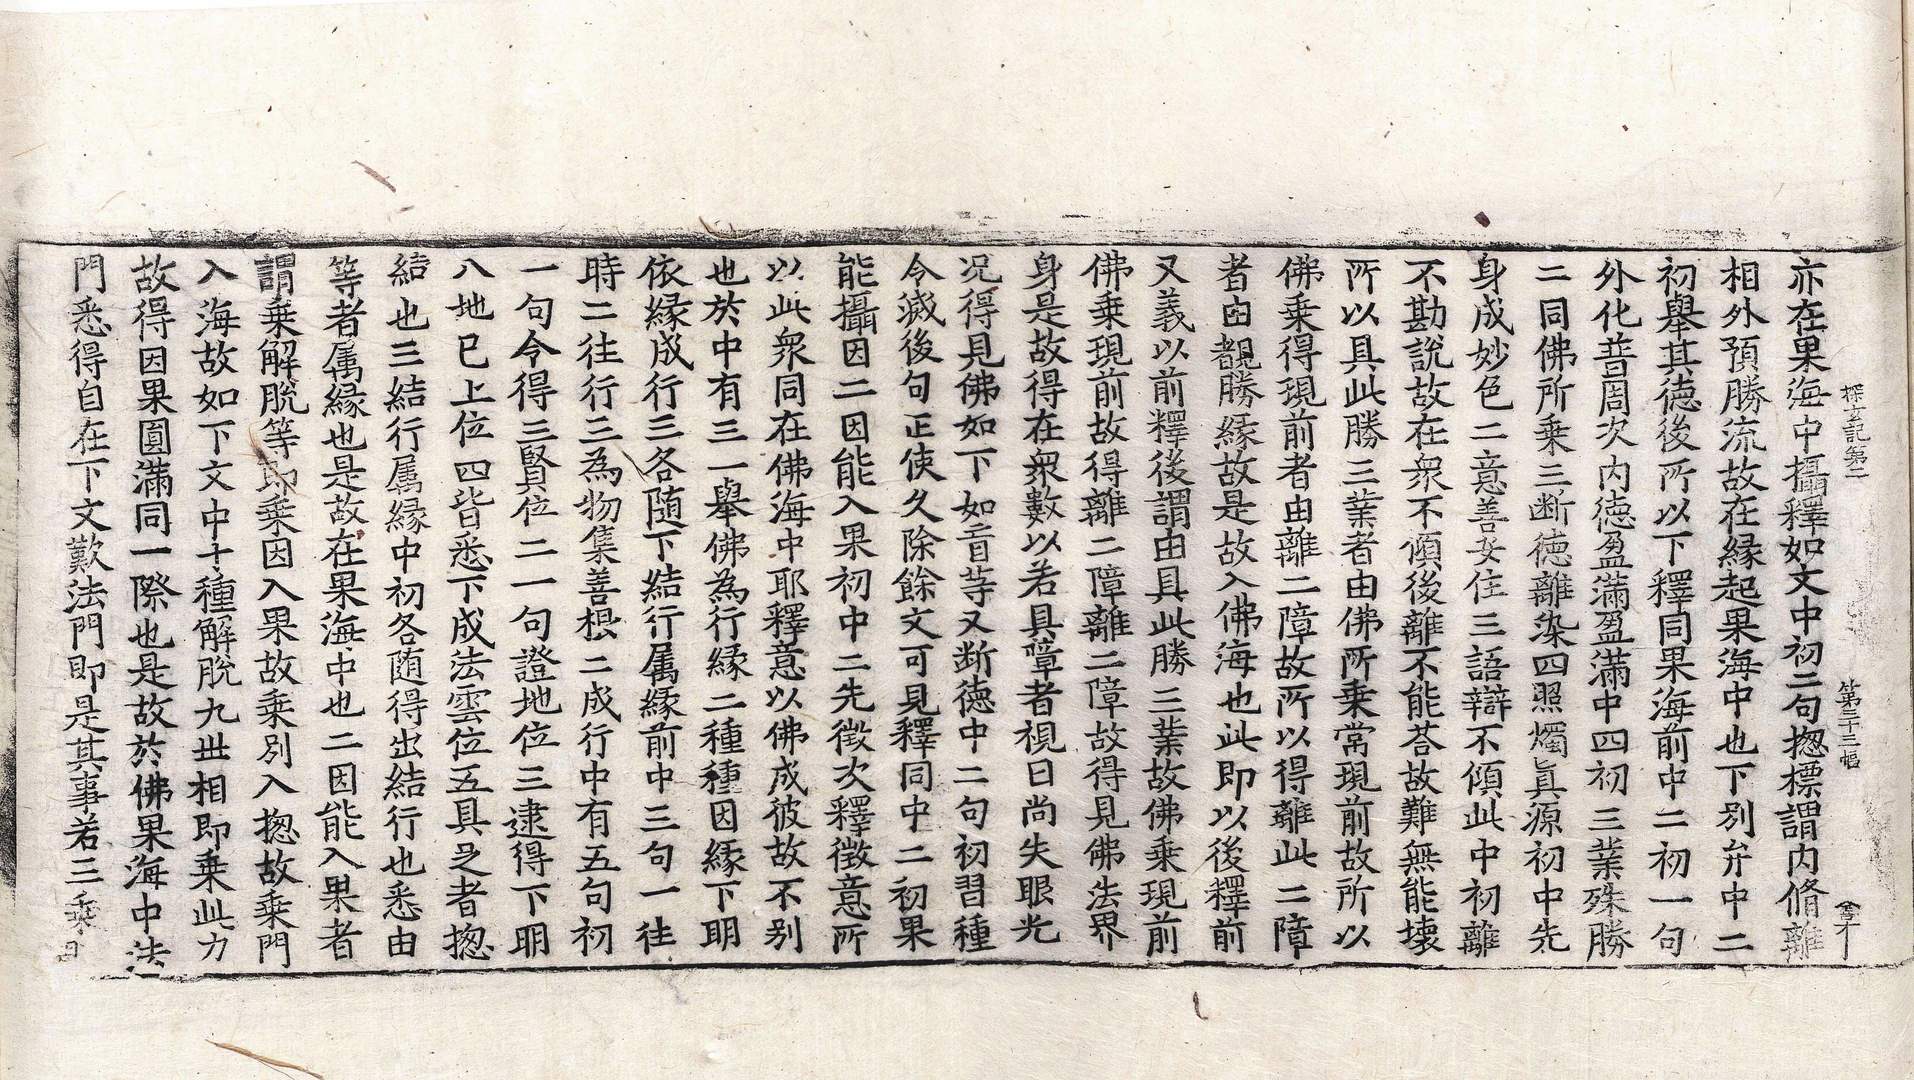 探玄記第二 第三十三幅
亦在果海中攝釋如文中初二句揔標謂内脩離
相外預勝流故在緣起果海中也下別弁中二
初舉其德後所以下釋同果海前中二初一句
外化普周次内德盈滿盈滿中四初三業殊勝
二同佛所乘三斷德離染四照燭真源初中先
身成妙色二意善安住三語辯不傾此中初離
不勘說故在衆不傾後離不能荅故難無能壞
所以具此勝三業者由佛所乘常現前故所以
佛乘得現前者由離二障故所以得離此二障
者由覩勝緣故是故入佛海也此即以後釋前
又義以前釋後謂由具此勝三業故佛乘現前
佛乘現前故得離二障離二障故得見佛法界
身是故得在衆數以若具障者視日尚失眼光
况得見佛如下如盲等又断德中二句初習種
令滅後句正使久除餘文可見釋同中二初果
能攝因二因能入果初中二先徵次釋徵意所
以此衆同在佛海中耶釋意以佛成彼故不別
也於中有三一舉佛為行緣二種種因緣下明
依緣成行三各随下結行属緣前中三句一往
時二往行三為物集善根二成行中有五句初
一句令得三賢位二一句證地位三逮得下明
八地已上位四皆悉下成法雲位五具足者揔
結也三結行属緣中初各随得出結行也悉由
等者属緣也是故在果海中也二因能入果者
謂乗解脫等即乗因入果故乗別入揔故乗門
入海故如下文中十種解脫九世相即乗此力
故得因果圓滿同一際也是故於佛果海中法
門悉得自在下文歎法門即是其事若三乗